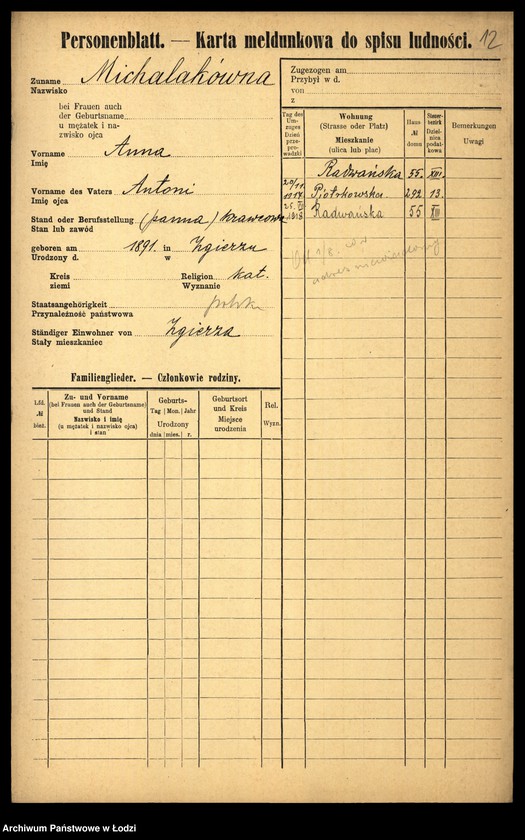 Personenblatt. — Karta meldunkowa do spisu ludności. 12
Zuname Michalakówna
Nazwisko
bei Frauen auch
der Geburtsname
u mężatek i na-
zwisko ojca
Vorname Anna
Imię
Vorname des Vaters Antoni
Imię ojca
Stand oder Berufsstellung (panna) krawcowa
Stan lub zawód
geboren am 1891. in Zgierzu
Urodzony d. w
Kreis Religion kat.
ziemi Wyznanie
Staatsangehörigkeit polska
Przynależność państwowa
Ständiger Einwohner von Zgierza
Stały mieszkaniec
Familienglieder. — Członkowie rodziny.
Lfd. № bież.
Zu- und Vorname
(bei Frauen auch der Geburtsname)
und Stand
Nazwisko i imię
(u mężatek i nazwisko ojca)
i stan
Geburts-
Tag Mon. Jahr
Urodzony
dnia mies. r.
Geburtsort
und Kreis
Miejsce
urodzenia
Rel.
Wyzn.
Zugezogen am
Przybył w d.
von
z
Tag des
Um-
zuges
Dzień
prze-
prowadzki
Wohnung
(Strasse oder Platz)
Mieszkanie
(ulica lub plac)
Haus
№
domu
Steuer-
bezirk
Dziel-
nica
podat-
kowa
Bemerkungen
Uwagi
Radwańska 55. XIII.
20/11 1917 Piotrkowska 292 13.
Radwańska 55 XIII
adres niewiadomy
Archiwum Państwowe w Łodzi